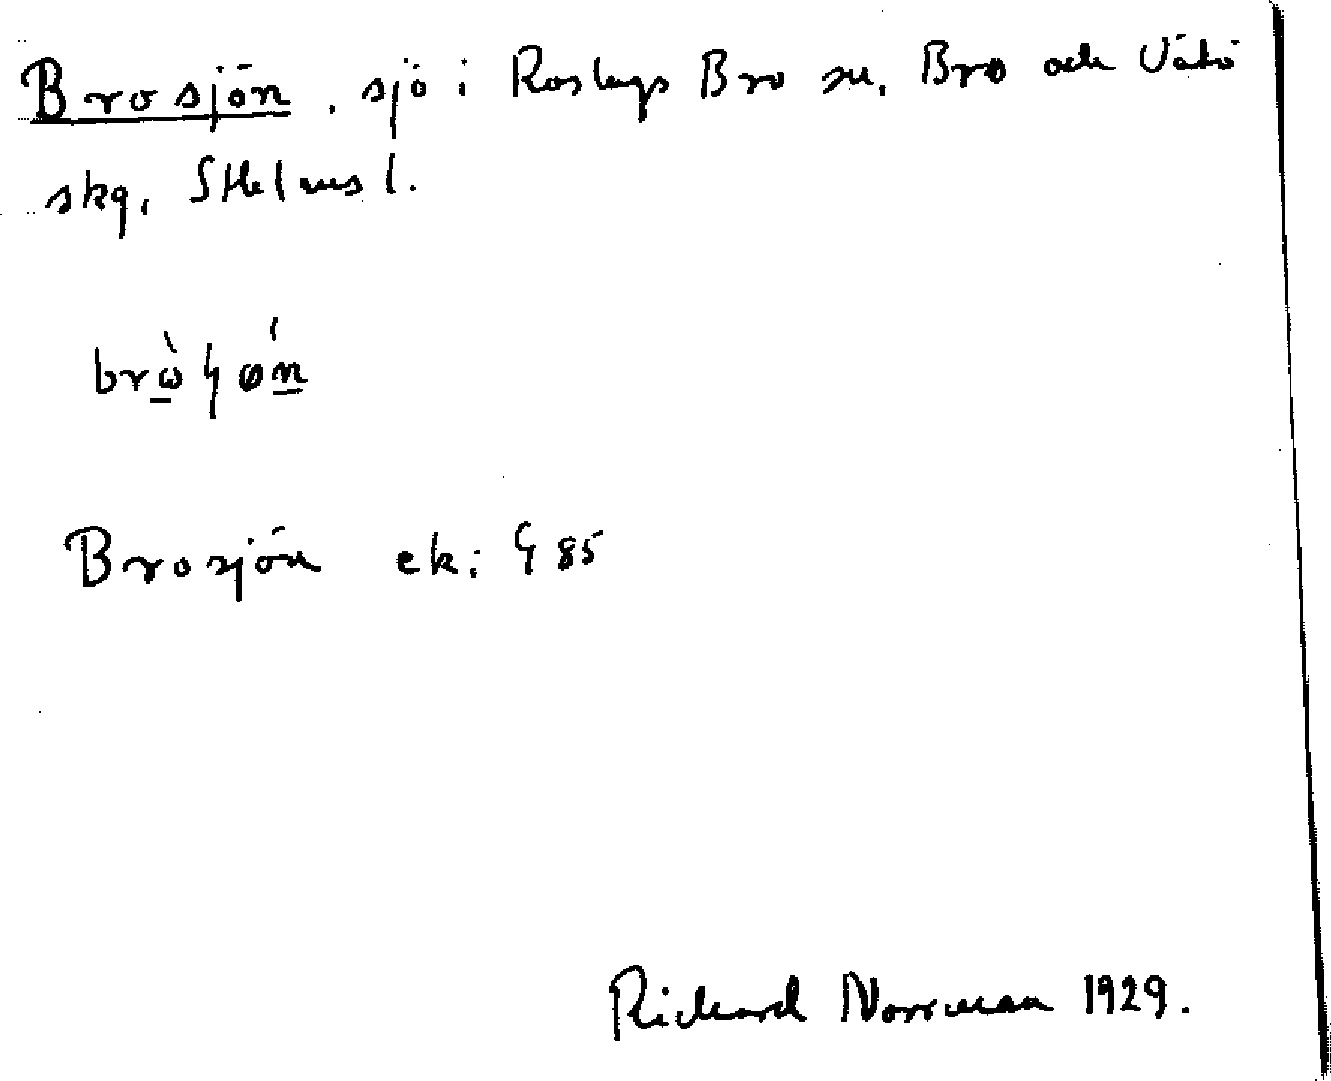 Brosjön, sjö i Roslags Bro sn, Bro och Vätö
skg, SHelms l.
brὼɧøń
Brosjön ek: 85
Rickard Norrman 1929.